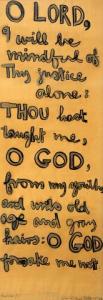 O LORD,
I will be
mindful of
Thy justice
alone:
THOU hast
taught me,
O GOD,
from my youth,
and unto old
age and gray
hairs: O GOD
forsake me not